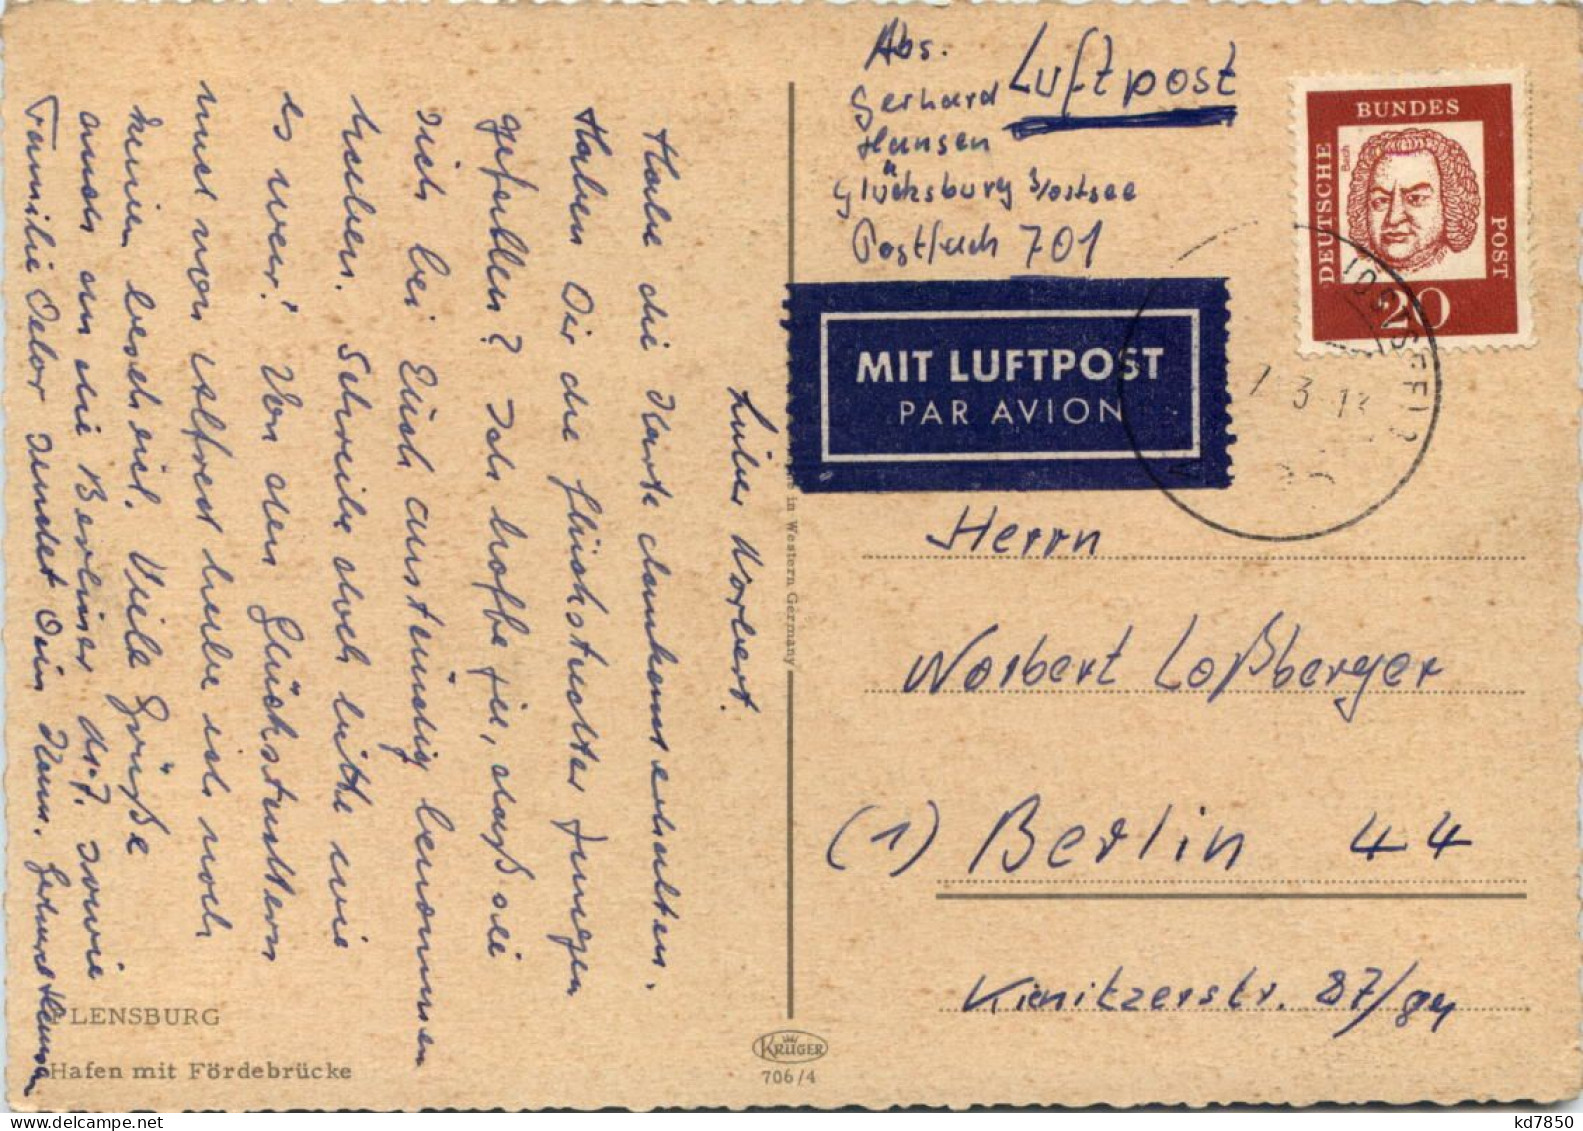 Abs.
Gerhard
Hansen
Glücksburg /Ostsee
Postfach 701
Luftpost
DEUTSCHE
BUNDES
POST
Bach
20
MIT LUFTPOST
PAR AVION
Herrn
Norbert Loßberger
(1) Berlin 44
Kienitzerstr. 87/
Lieber Norbert.
Habe die Karte dankend erhalten.
Haben Dir die Glückstadter Jungen
gefallen? Ich hoffe ja, daß sie
sich bei Euch anständig benommen
haben. Schreibe doch bitte wie
es war! Von den Glückstadtern
und von Alfred habe ich noch
keinen Bescheid. Viele Grüße
auch an die Berliner sowie
Familie sendet Dein Kam. Gerhard Hansen
in Western Germany
LENSBURG
Hafen mit Fördebrücke
KRÜGER
706/4
kd7850